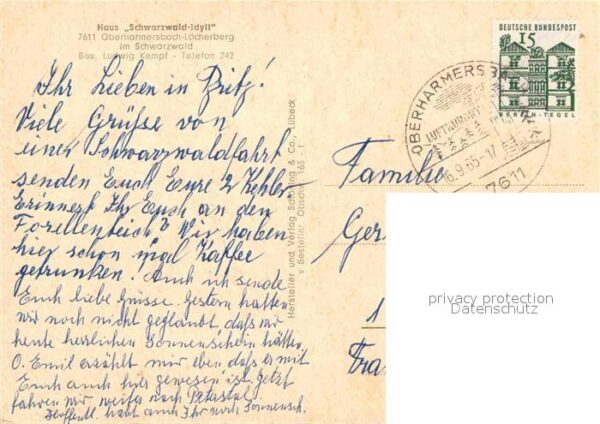 Haus „Schwarzwald-Idyll"
7611 Oberharmersbach-Löcherberg
im Schwarzwald
Bes. Ludwig Kempf - Telefon 242
Ihr Lieben in Britz!
Viele Grüße von
einer Schwarzwaldfahrt
senden Euch Eure 2 Kehler
Erinnert Ihr Euch an den
Forellenteich? Wir haben
hier schon mal Kaffee
getrunken! Auch ich sende
Euch liebe Grüsse. Gestern hatten
wir noch nicht geglaubt, daß wir
heute herrlichen Sonnenschein hätten,
O. Emil erzählt mir eben daß er mit
Euch auch hier gewesen ist. Jetzt
fahren wir weiter nach Peterstal.
Hoffentl. habt auch Ihr noch Sonnensch.
Hersteller und Verlag Schöning & Co., Lübeck
v Besteller. Obsch. 165 1
DEUTSCHE BUNDESPOST
15
BERLIN-TEGEL
OBERHARMERSBACH
LUFTKURORT
6.9.65-17
7611
Familie
Ger
1
Fra
privacy protection
Datenschutz